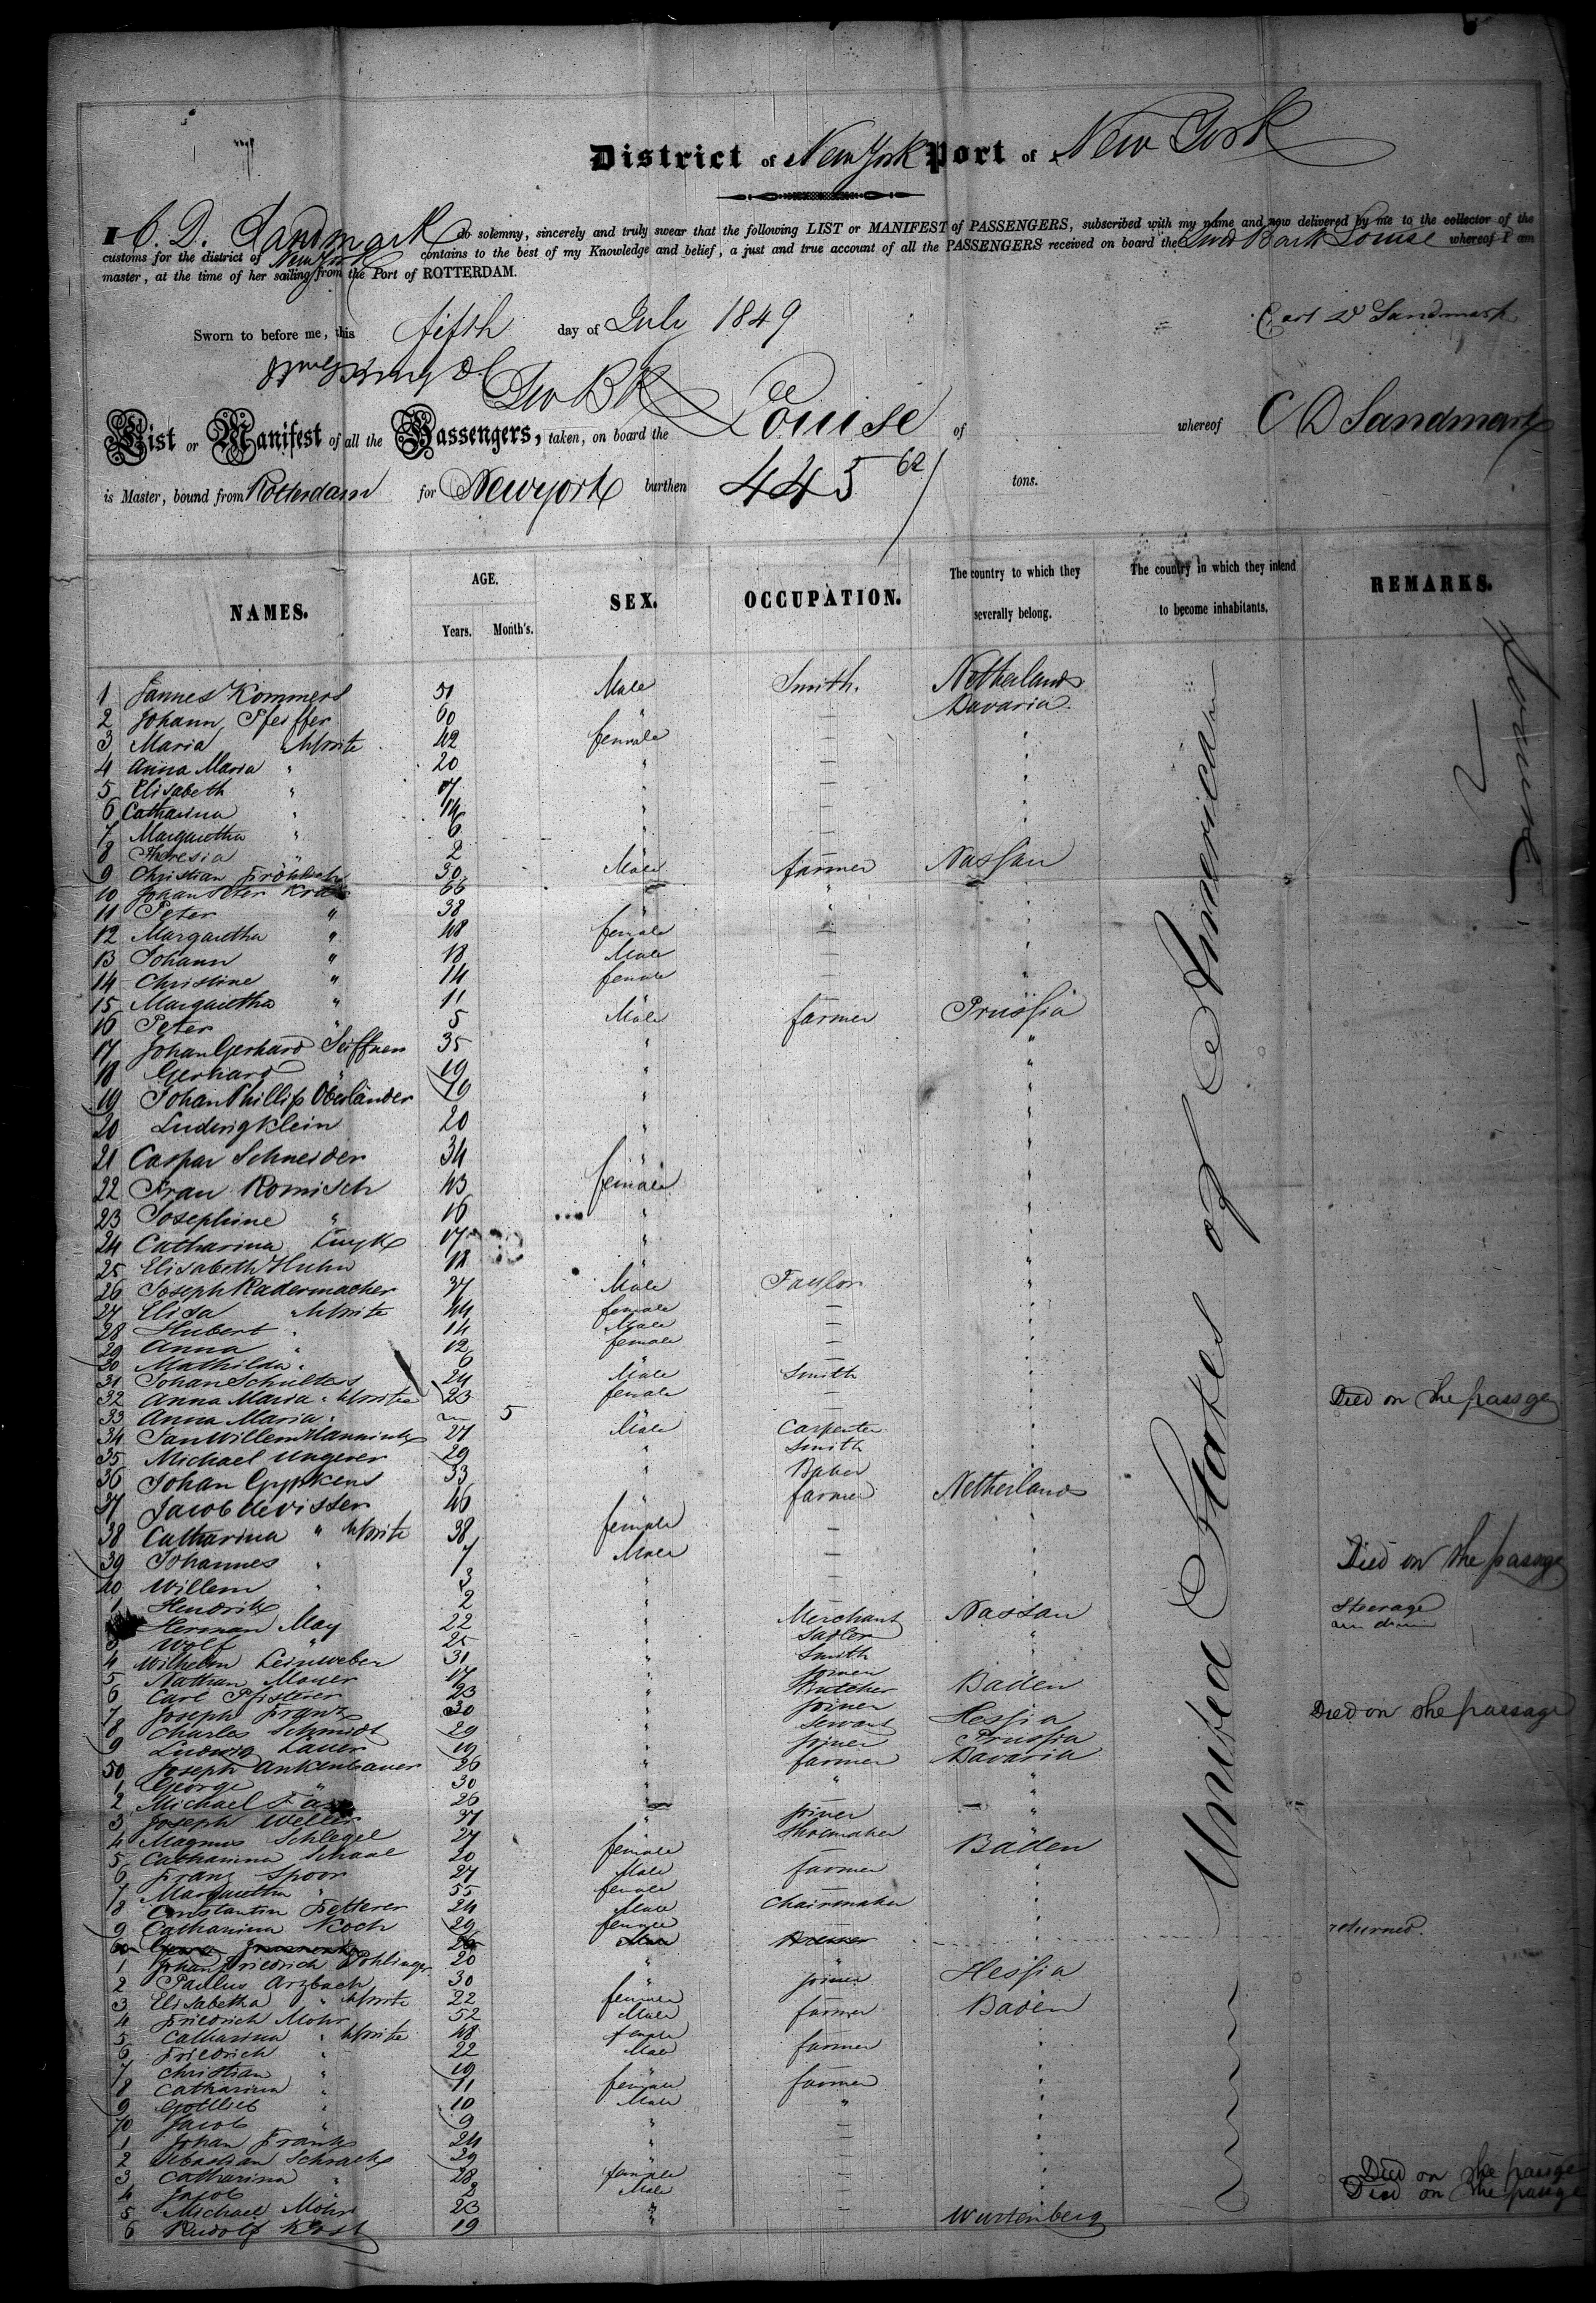 District of New York Port of New York
I C. D. Sandmark do solemny, sincerely and truly swear that the following LIST or MANIFEST of PASSENGERS, subscribed with my name and now delivered by me to the collector of the
customs for the district of New York contains to the best of my Knowledge and belief, a just and true account of all the PASSENGERS received on board the Bark Louise whereof I am
master, at the time of her sailing from the Port of ROTTERDAM.
Sworn to before me, this fifth day of July 1849 Carl D Sandmark
List or Manifest of all the Passengers, taken, on board the Louise of whereof C D Sandmark
is Master, bound from Rotterdam for Newyork burthen 445 62/ tons.
NAMES. AGE. Years. Month's. SEX. OCCUPATION. The country to which they severally belong. The country in which they intend to become inhabitants. REMARKS.
United States of America
Louise
1 Jannes Kommers 51 Male Smith. Netherlands
2 Johann Pfeiffer 60 " — Bavaria
3 Maria " 42 female — "
4 Anna Maria " 20 " — "
5 Elisabeth " 17 " — "
6 Catharina " 14 " — "
7 Margaretha " 6 " — "
8 Theresia " 2 " —
9 Christian Fröhlich 30 Male farmer Nassau
10 Johan Peter 66 " "
11 Peter " 38 " "
12 Margaretha " 48 female — "
13 Johann " 18 Male — "
14 Christine " 14 female — "
15 Margaretha " 11 "
16 Peter " 5 Male farmer Prussia
17 Johan Gerhard Seiffner 35 " "
18 Gerhard " 19 " "
19 Johan Phillip Oberländer 19 " "
20 Ludwig Klein 20 " "
21 Caspar Schneider 34 " "
22 Frau Romisch 43 female "
23 Josephine " 16 " "
24 Catharina 17 " "
25 Elisabeth Huhn 18 "
26 Joseph Radermacher 37 Male Taylor "
27 Elisa " 44 female — "
28 Hubert " 14 Male — "
29 Anna " 12 female — "
30 Mathilda " 6 " — "
31 Johan Schultes 24 Male Smith "
32 Anna Maria " 23 female — "
33 Anna Maria " 5 " — " Died on the passage
34 Jan Willem 27 Male Carpenter "
35 Michael Ungerer 29 " Smith "
36 Johan Gypkens 33 " Baker
37 Jacob de Visser 46 " farmer Netherlands
38 Catharina " 38 female — "
39 Johannes " 7 Male — "
40 Willem " 3 " — " Died on the passage
1 Hendrik 2 "
Herman May 22 " Merchant Nassau Steerage
3 Wolf " 25 " Sadler "
4 Wilhelm Leinweber 31 " Smith "
5 Nathan Mayer 17 " Joiner
6 Carl Pfisterer 23 " Butcher Baden
7 Joseph Franz 30 " Joiner Died on the passage
8 Charles Schmidt 29 " Servant Hessia
9 Ludwig Lauer 19 " Joiner Prussia
50 Joseph Ankenbauer 26 " farmer Bavaria
1 George " 30 " " "
2 Michael 26 " — "
3 Joseph Weller 37 " Joiner "
4 Magnus Schlegel 27 " Shoemaker
5 Catharina Schaal 20 female Baden
6 Franz Spoor 27 Male farmer "
7 Margaretha " 55 female — "
8 Constantin Fetterer 24 Male Chairmaker "
9 Catharina Koch 29 female "
60 returned.
1 Johan Friedrich Pohlinger 20 " "
2 Paulus Arzbach 30 " Joiner Hessia
3 Elisabetha " 22 female
4 Friedrich Mohr 52 Male farmer Baden
5 Catharina " 48 female "
6 Friedrich " 22 Male farmer "
7 Christian " 19 " "
8 Catharina " 11 female farmer "
9 Gottlieb " 10 Male " "
70 Jacob " 9 " — "
1 Johan Frank 24 " — "
2 Sebastian 29 " — "
3 Catharina " 28 female — " Died on the passage
4 Jacob " 2 Male — " Died on the passage
5 Michael Mohr 23 " —
6 Rudolf 19 " Wurtenberg